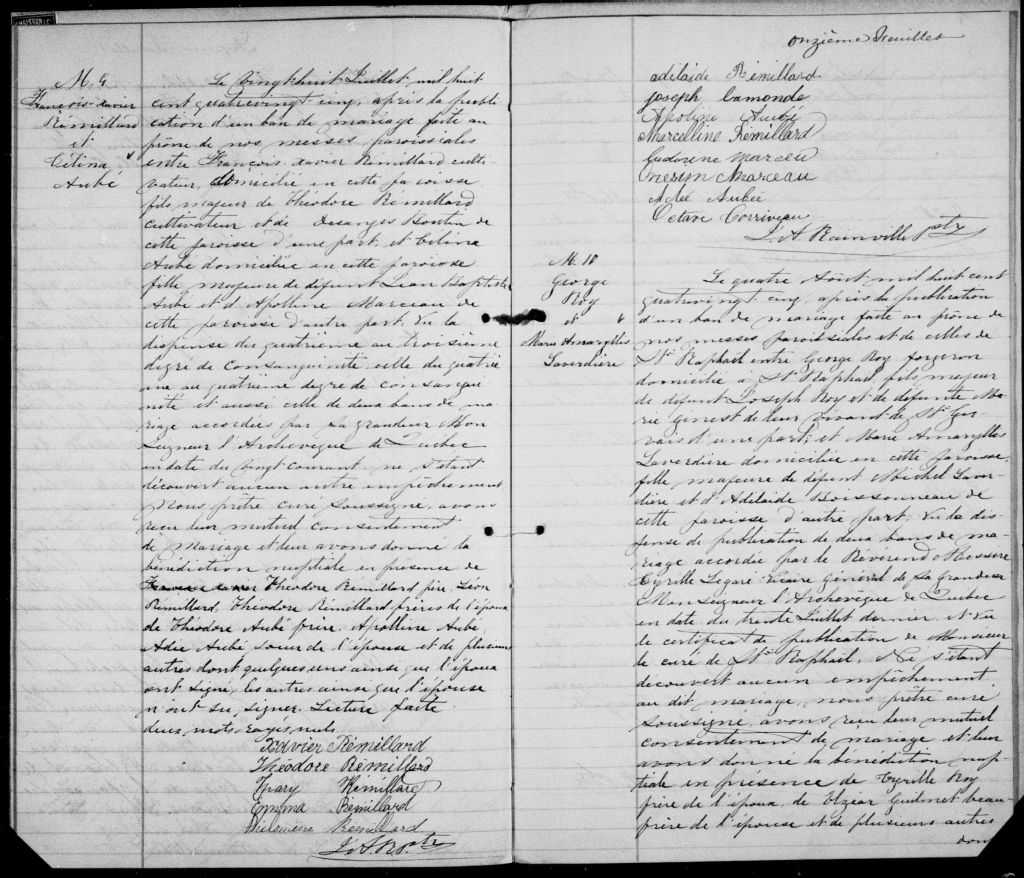 M. 9
François-xavier
Rémillard
et
Célina
Aubé
Le Vingt-huit Juillet mil huit
cent quatrevingt cinq, après la publi
cation d'un ban de mariage faite au
prône de nos messes paroissiales
entre François-xavier Rémillard culti-
vateur, domiciliée en cette paroisse
fils majeur de Théodore Rémillard
cultivateur et de Desanges Boutin de
cette paroisse d'une part, et Célina
Aubé domiciliée en cette paroisse
fille majeure de défunt Jean Baptiste
Aubé et d'Apolline Marceau de
cette paroisse d'autre part. Vu la
dispense du quatrième au troisième
degré de consanguinité celle du quatriè
me au quatrième degré de consangui
nité et aussi celle de deux bans de ma
riage accordées par Sa Grandeur Mon
Seigneur l'Archevêque de Québec
en date du vingt courant, ne s'étant
découvert aucun autre empêchement
Nous prêtre curé soussigné, avons
reçu leur mutuel consentement
de mariage et leur avons donné la
bénédiction nuptiale en présence de
Théodore Rémillard père, Léon
Rémillard, Théodore Rémillard frères de l'époux
de Théodore Aubé frère, Apolline Aubé
Adée Aubé soeur de l'épouse et de plusieurs
autres dont quelques uns ainsi que l'époux
ont signé, les autres ainsi que l'épouse
n'ont su signer. Lecture faite.
deux mots rayés nuls.
Xavier Rémillard
Théodore Rémillard
Mary Rémillard
Emma Rémillard
Philomène Rémillard
J. A. R. Ptr
onzième feuillet
adelaide Rémillard
Joseph Lamonde
Apoline Aubé
Marcelline Rémillard
Marceau
Onesim Marceau
Adée Aubée
Octave Corriveau
J. A. Rainville Ptr
M. 10
George
Roy
et
Marie Amaryllis
Laverdière
Le quatre Août mil huit cent
quatrevingt cinq, après la publication
d'un ban de mariage faite au prône de
nos messes paroissiales et de celles de
St. Raphaël entre George Roy forgeron
domicilié à St Raphaël, fils majeur
de défunt Joseph Roy et de défunte Ma-
rie Génest de leur vivant de St Ger-
vais d'une part; et Marie Amaryllis
Laverdière domiciliée en cette paroisse,
fille majeure de défunt Michel Laver-
dière et d'Adélaïde Boissonneau de
cette paroisse d'autre part, Vu la dis-
pense de publication de deux bans de ma-
riage accordée par le Révérend Messire
Cyrille Légaré Vicaire Général de Sa Grandeur
Monseigneur l'Archevêque de Québec
en date du trente Juillet dernier, et Vu
le certificat de publication de Monsieur
le curé de St. Raphaël, Ne s'étant
découvert aucun empêchement
au dit mariage, nous prêtre curé
soussigné, avons reçu leur mutuel
consentement de mariage et leur
avons donné la bénédiction nup
tiale en présence de Cyrille Roy
frère de l'époux, de Elzéar Guilmet beau
frère de l'épouse et de plusieurs autres
dont